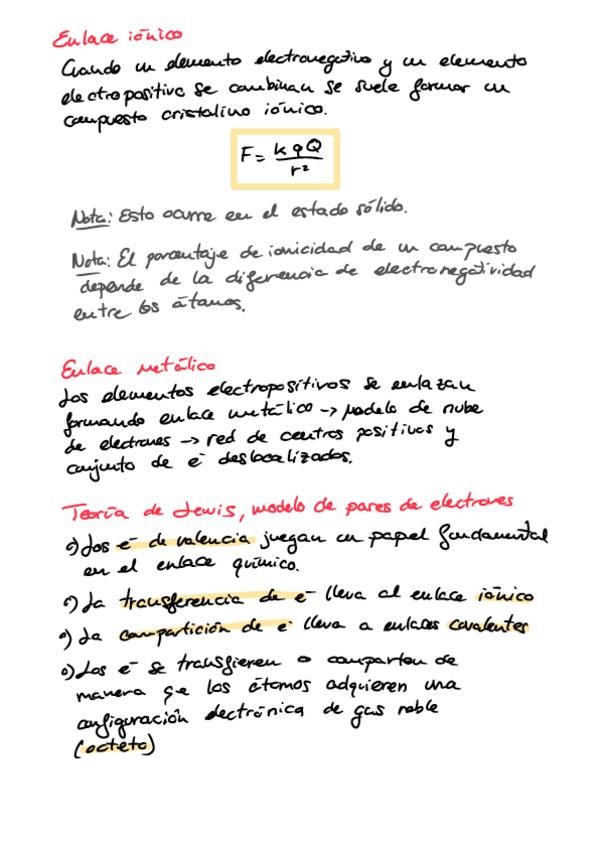 Enlace iónico
Cuando un elemento electronegativo y un elemento
electropositivo se combinan se suele formar un
compuesto cristalino iónico.
F = k q Q / r²
Nota: Esto ocurre en el estado sólido.
Nota: El porcentaje de ionicidad de un compuesto
depende de la diferencia de electronegatividad
entre los átomos.
Enlace metálico
Los elementos electropositivos se enlazan
formando enlace metálico -> modelo de nube
de electrones -> red de centros positivos y
conjunto de e⁻ deslocalizados.
Teoría de Lewis, modelo de pares de electrones
o) Los e⁻ de valencia juegan un papel fundamental
en el enlace químico.
o) La transferencia de e⁻ lleva al enlace iónico
o) La compartición de e⁻ lleva a enlaces covalentes
o) Los e⁻ se transfieren o comparten de
manera qe los átomos adquieren una
configuración electrónica de gas noble
(octeto)